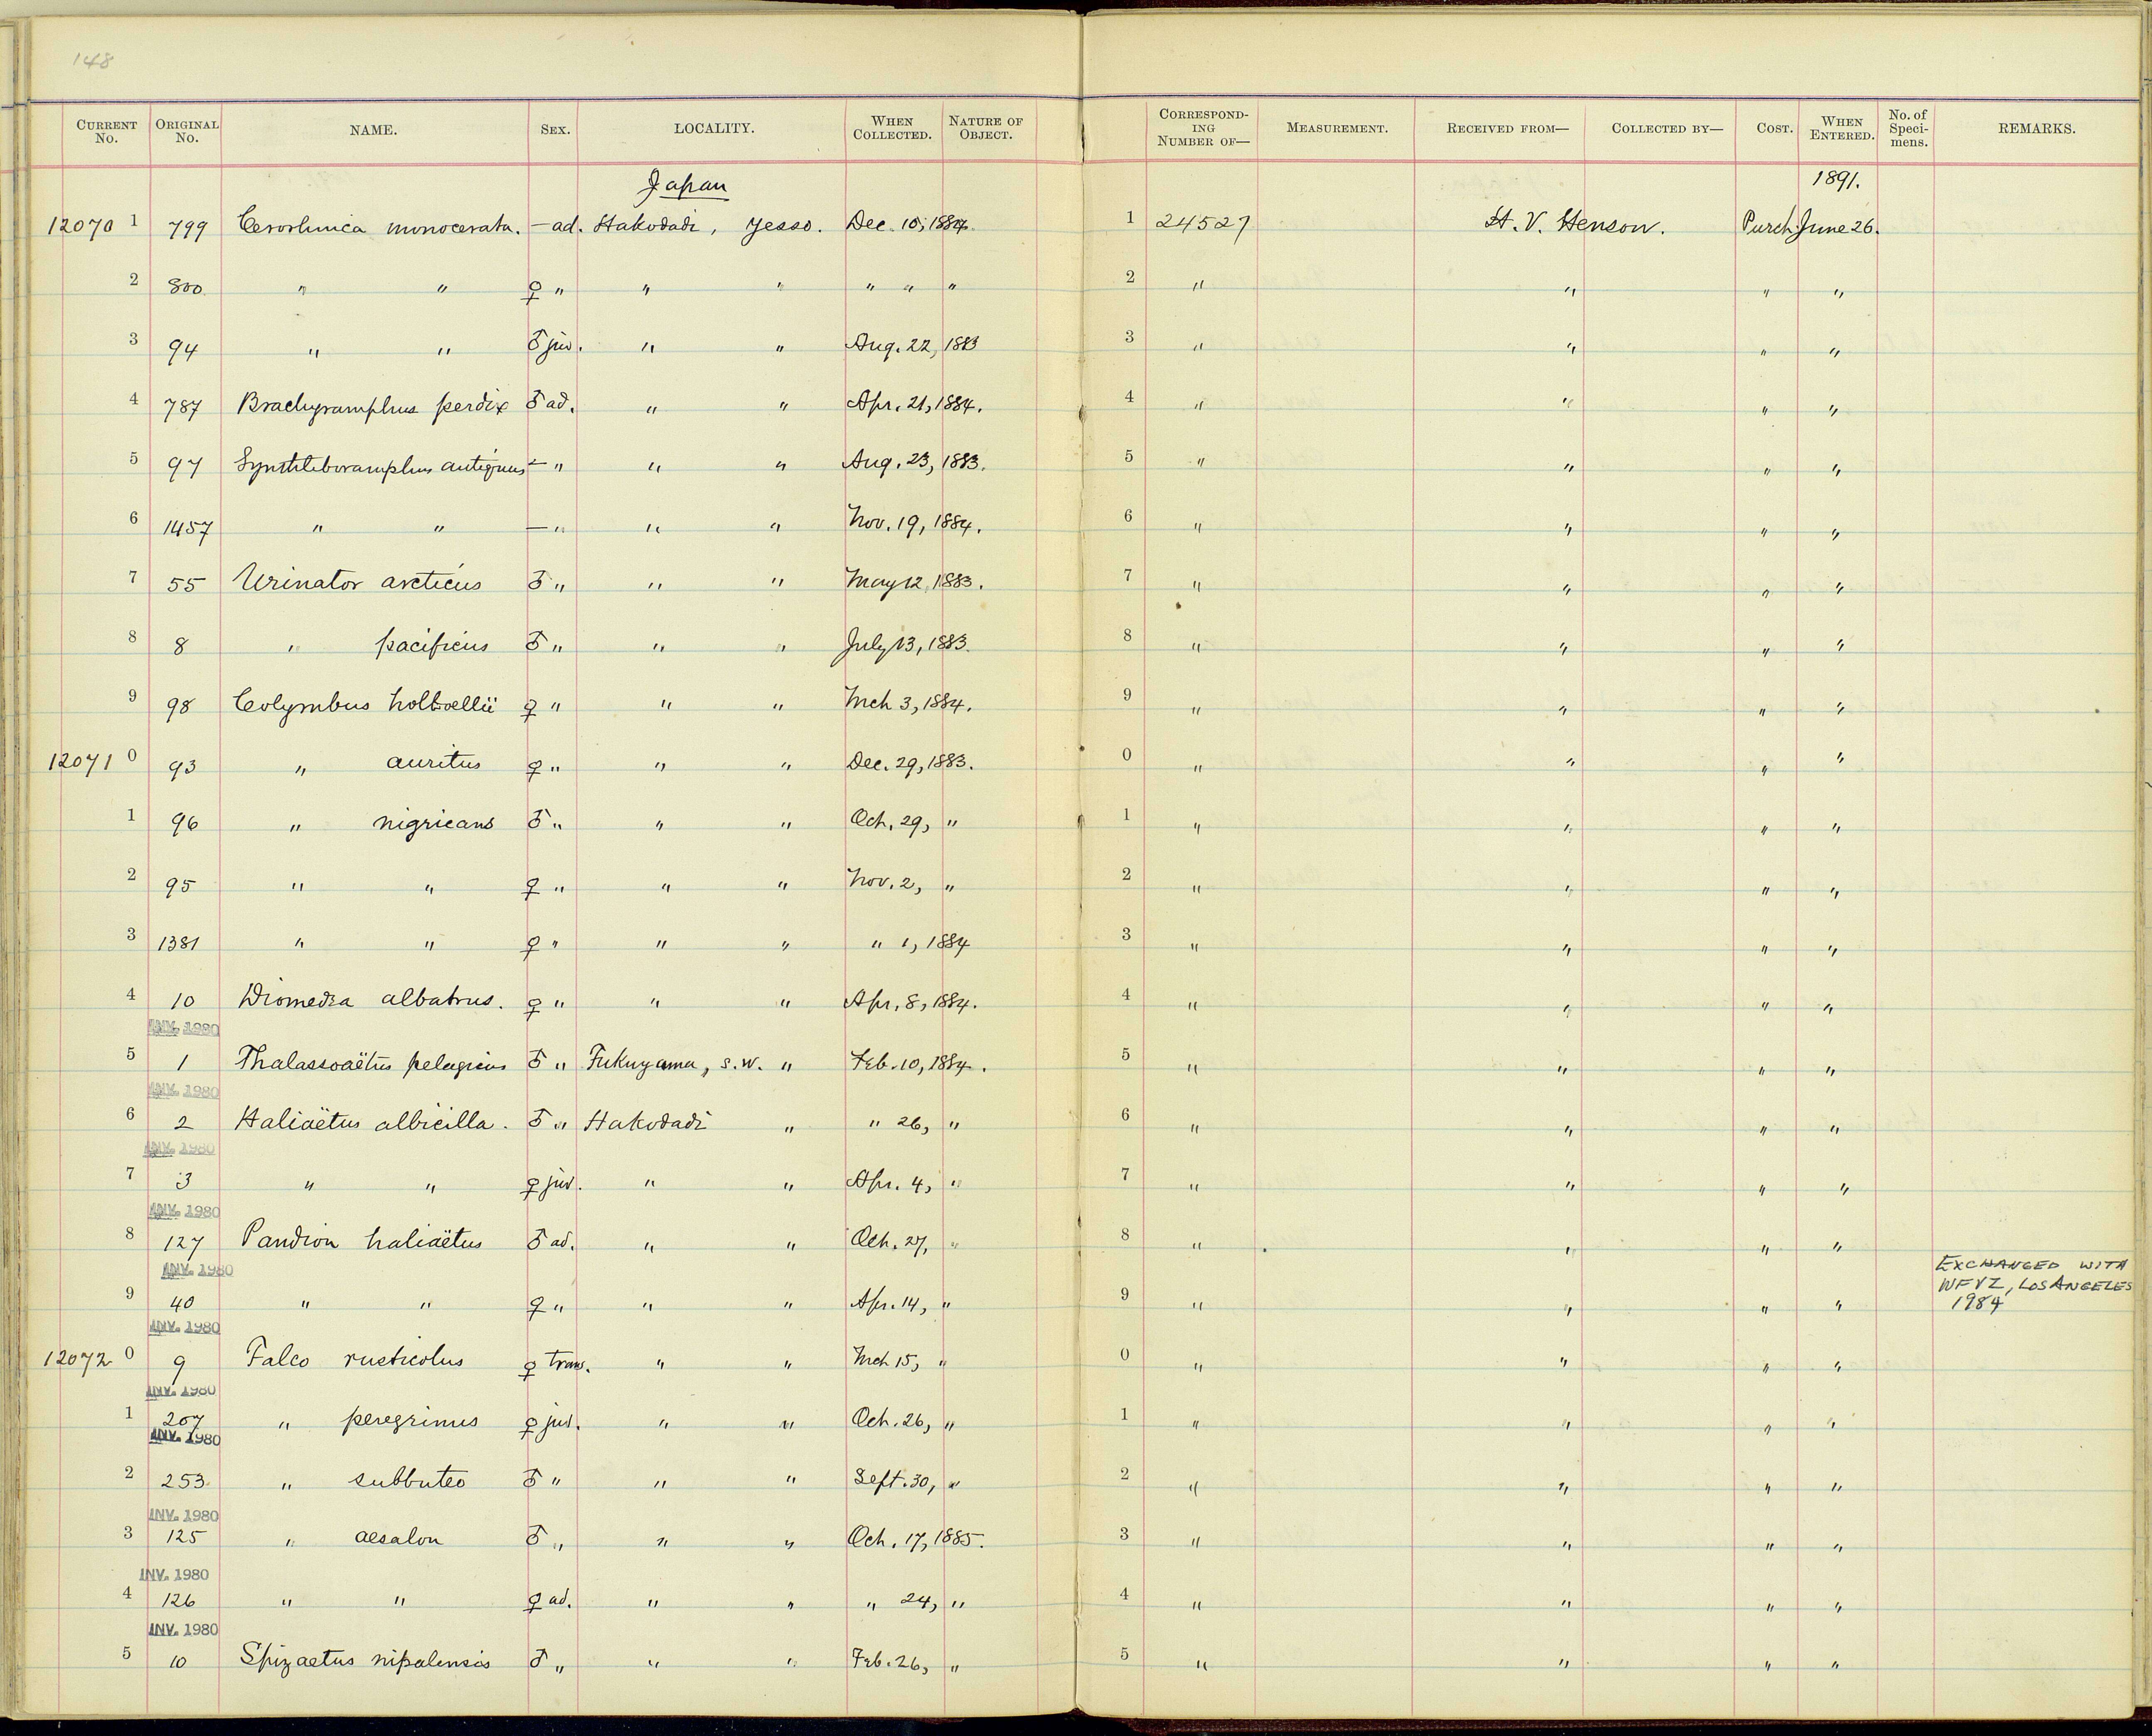 148
CURRENT No. ORIGINAL No. NAME. SEX. LOCALITY. WHEN COLLECTED. NATURE OF OBJECT. CORRESPONDING NUMBER OF— MEASUREMENT. RECEIVED FROM— COLLECTED BY— COST. WHEN ENTERED. No. of Specimens. REMARKS.
Japan 1891.
12070 1 799 Cerorhinca monocerata. — ad. Hakodadi, Yesso. Dec. 10, 1884. 1 24527 H. V. Henson. Purch. June 26.
2 800 " " ♀ " " " " " " 2 " " " "
3 94 " " ♂ juv. " " Aug. 22, 1883 3 " " " "
4 787 Brachyramphus perdix ♂ ad. " " Apr. 21, 1884. 4 " " " "
5 97 Synthliboramphus antiquus — " " " Aug. 23, 1883. 5 " " " "
6 1457 " " — " " " Nov. 19, 1884. 6 " " " "
7 55 Urinator arcticus ♂ " " " May 12, 1883. 7 " " " "
8 8 " pacificus ♂ " " " July 13, 1883. 8 " " " "
9 98 Colymbus holboellii ♀ " " " Mch 3, 1884. 9 " " " "
12071 0 93 " auritus ♀ " " " Dec. 29, 1883. 0 " " " "
1 96 " nigricans ♂ " " " Oct. 29, " 1 " " " "
2 95 " " ♀ " " " Nov. 2, " 2 " " " "
3 1381 " " ♀ " " " " 1, 1884 3 " " " "
4 10 Diomedea albatrus. ♀ " " " Apr. 8, 1884. 4 " " " "
INV. 1980
5 1 Thalassoaëtus pelagicus ♂ " Fukuyama, s.w. " Feb. 10, 1884. 5 " " " "
INV. 1980
6 2 Haliaëtus albicilla. ♂ " Hakodadi " " 26, " 6 " " " "
INV. 1980
7 3 " " ♀ juv. " " Apr. 4, " 7 " " " "
INV. 1980
8 127 Pandion haliaëtus ♂ ad. " " Oct. 27, " 8 " " " "
INV. 1980
9 40 " " ♀ " " " Apr. 14, " 9 " " " " EXCHANGED WITH
WFVZ, LOS ANGELES
1984
INV. 1980
12072 0 9 Falco rusticolus ♀ trans. " " Mch 15, " 0 " " " "
INV. 1980
1 207 " peregrinus ♀ juv. " " Oct. 26, " 1 " " " "
INV. 1980
2 253 " subbuteo ♂ " " " Sept. 30, " 2 " " " "
INV. 1980
3 125 " aesalon ♂ " " " Oct. 17, 1885. 3 " " " "
INV. 1980
4 126 " " ♀ ad. " " " 24, " 4 " " " "
INV. 1980
5 10 Spizaetus nipalensis ♂ " " " Feb. 26, " 5 " " " "